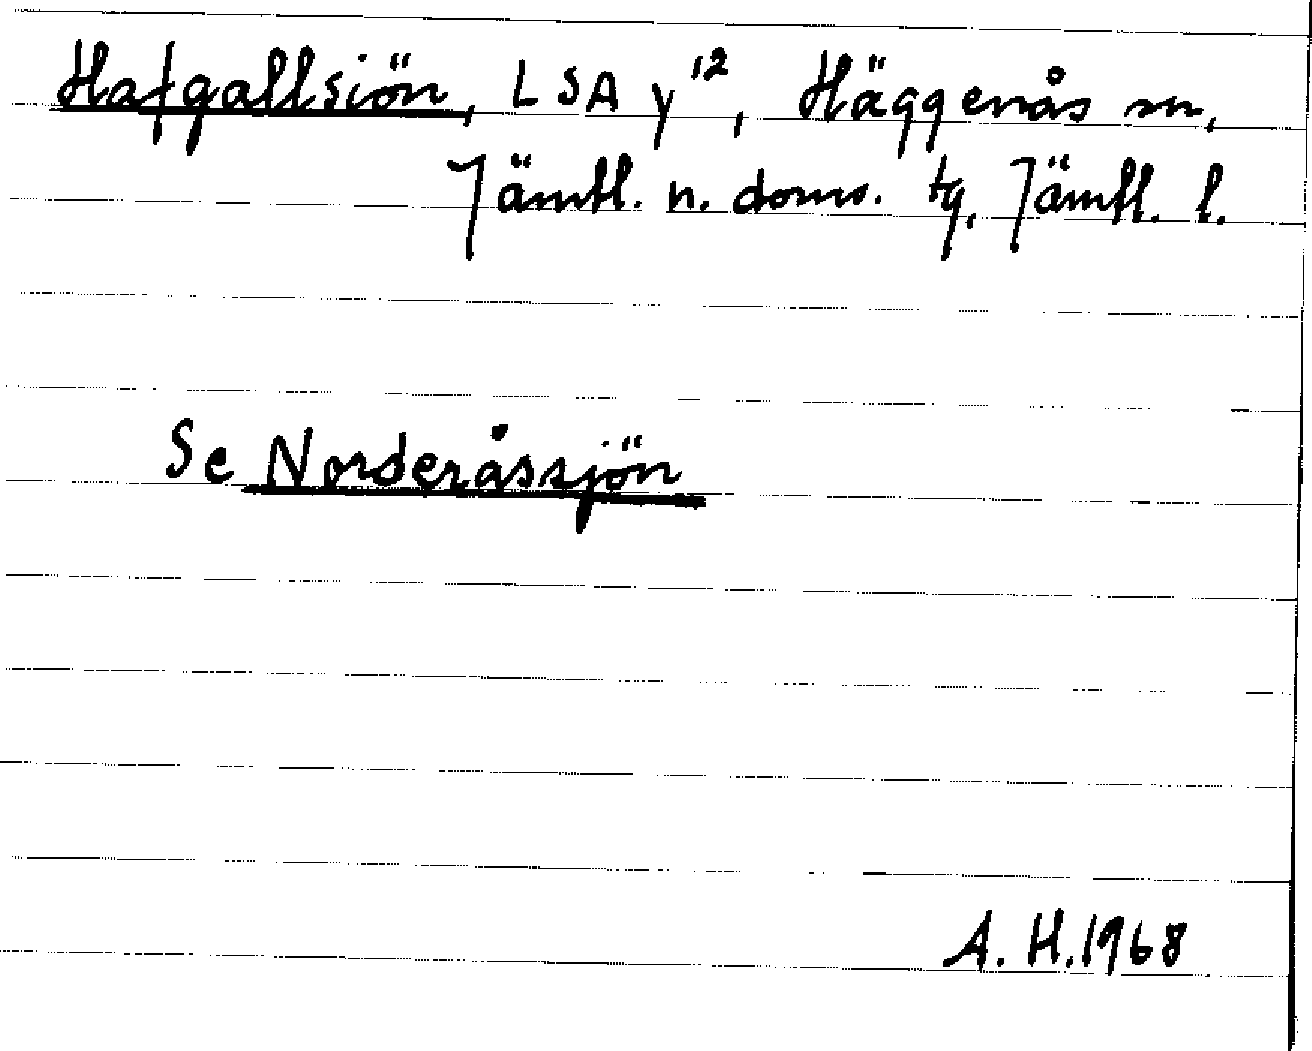 Hafgallsiön, LSA y¹², Häggenås sn,
Jämtl. n. doms. tg, Jämtl. l.
Se Norderåssjön
A. H. 1968